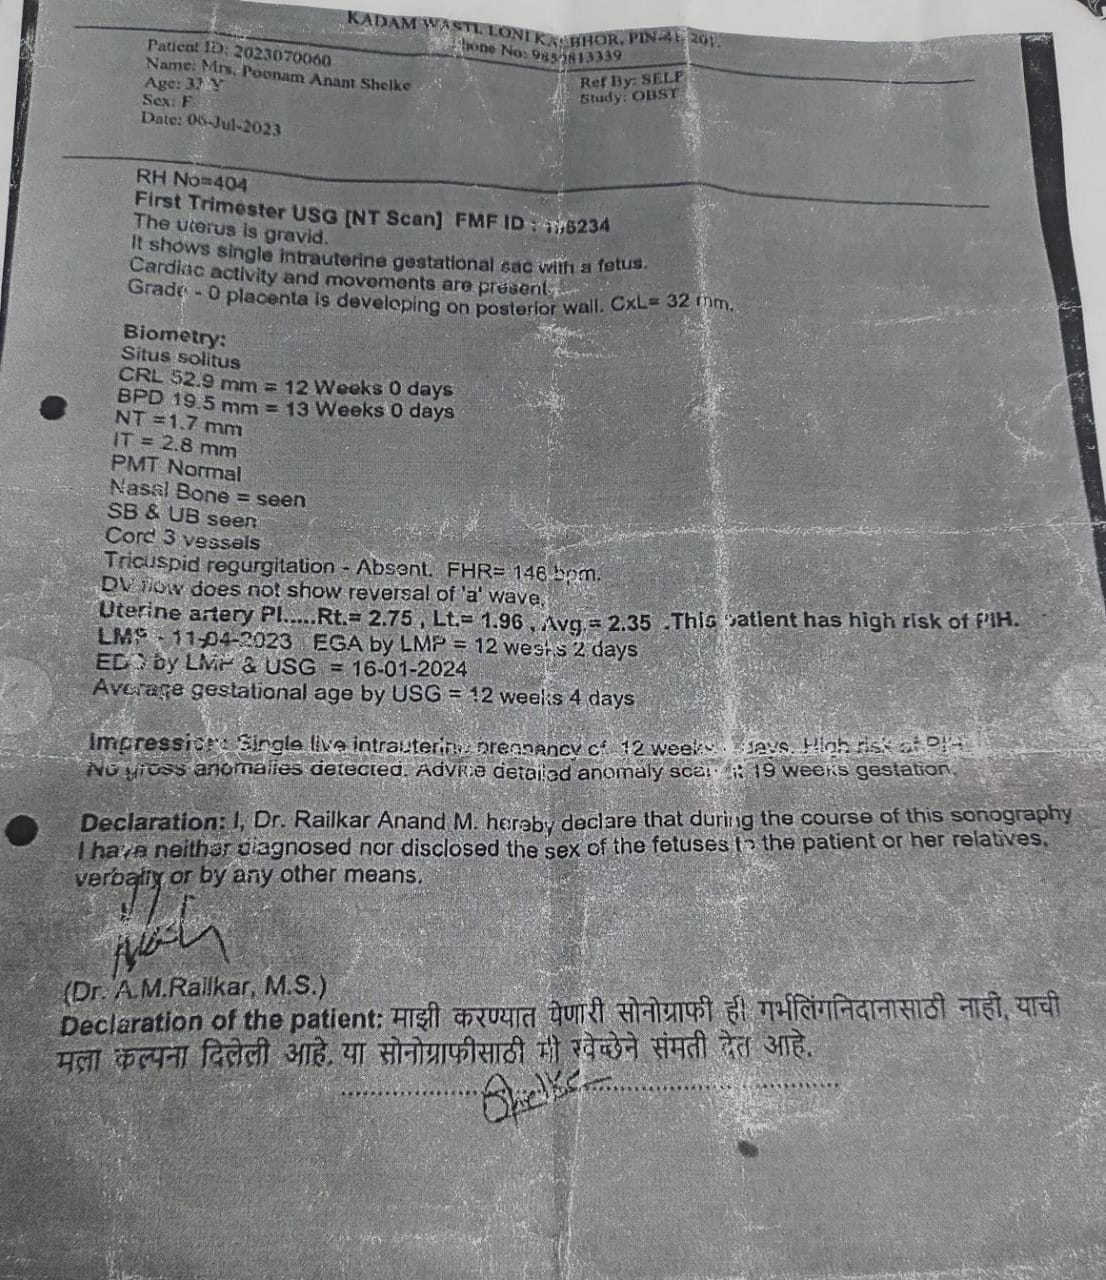 KADAM WASTI, LONI KALBHOR, PIN-
Phone No:
Patient ID: 2023070060
Name: Mrs. Poonam Anant Shelke
Ref By: SELF
Age: Y
Study: OBST
Sex: F
Date: 06-Jul-2023
RH No=404
First Trimester USG [NT Scan] FMF ID :
The uterus is gravid.
It shows single intrauterine gestational sac with a fetus.
Cardiac activity and movements are present.
Grade - 0 placenta is developing on posterior wall. CxL= 32 mm.
Biometry:
Situs solitus
CRL 52.9 mm = 12 Weeks 0 days
BPD 19.5 mm = 13 Weeks 0 days
NT =1.7 mm
IT = 2.8 mm
PMT Normal
Nasal Bone = seen
SB & UB seen
Cord 3 vessels
Tricuspid regurgitation - Absent. FHR= 146 bpm.
DV flow does not show reversal of 'a' wave.
Uterine artery PI.....Rt.= 2.75 , Lt.= 1.96 , Avg.= 2.35 .This patient has high risk of PIH.
LMP - 11-04-2023 EGA by LMP = 12 weeks 2 days
EDD by LMP & USG = 16-01-2024
Average gestational age by USG = 12 weeks 4 days
Impression: Single live intrauterine pregnancy of 12 weeks days. High risk of PIH.
No gross anomalies detected. Advice detailed anomaly scan at 19 weeks gestation.
Declaration: I, Dr. Railkar Anand M. hereby declare that during the course of this sonography
I have neither diagnosed nor disclosed the sex of the fetuses to the patient or her relatives,
verbally or by any other means.
(Dr. A.M.Railkar, M.S.)
Declaration of the patient: माझी करण्यात येणारी सोनोग्राफी ही गर्भलिंगनिदानासाठी नाही, याची
मला कल्पना दिलेली आहे. या सोनोग्राफीसाठी मी स्वेच्छेने संमती देत आहे.
Shelke